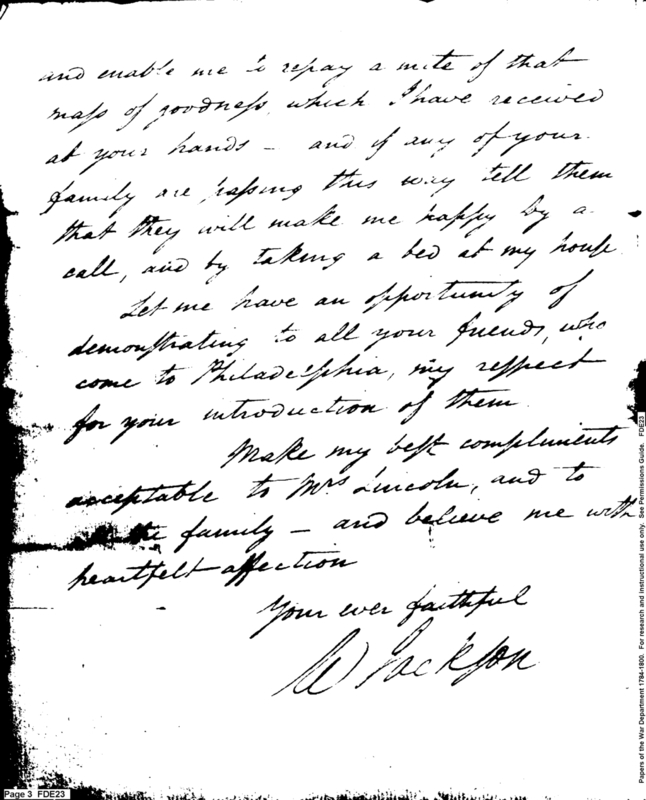 and enable me to repay a mite of that
maſs of goodneſs, which I have received
at your hands — and if any of your
family are paſsing this way tell them
that they will make me happy by a
call, and by taking a bed at my houſe
Let me have an opportunity of
demonſtrating to all your friends, who
come to Philadelphia, my reſpect
for your introduction of them
Make my beſt compliments
acceptable to Mrs Lincoln, and to
the family — and believe me with
heartfelt affection
Your ever faithful
W Jackson
Page 3 FDE23
Papers of the War Department 1784-1800. For research and instructional use only. See Permissions Guide. FDE23